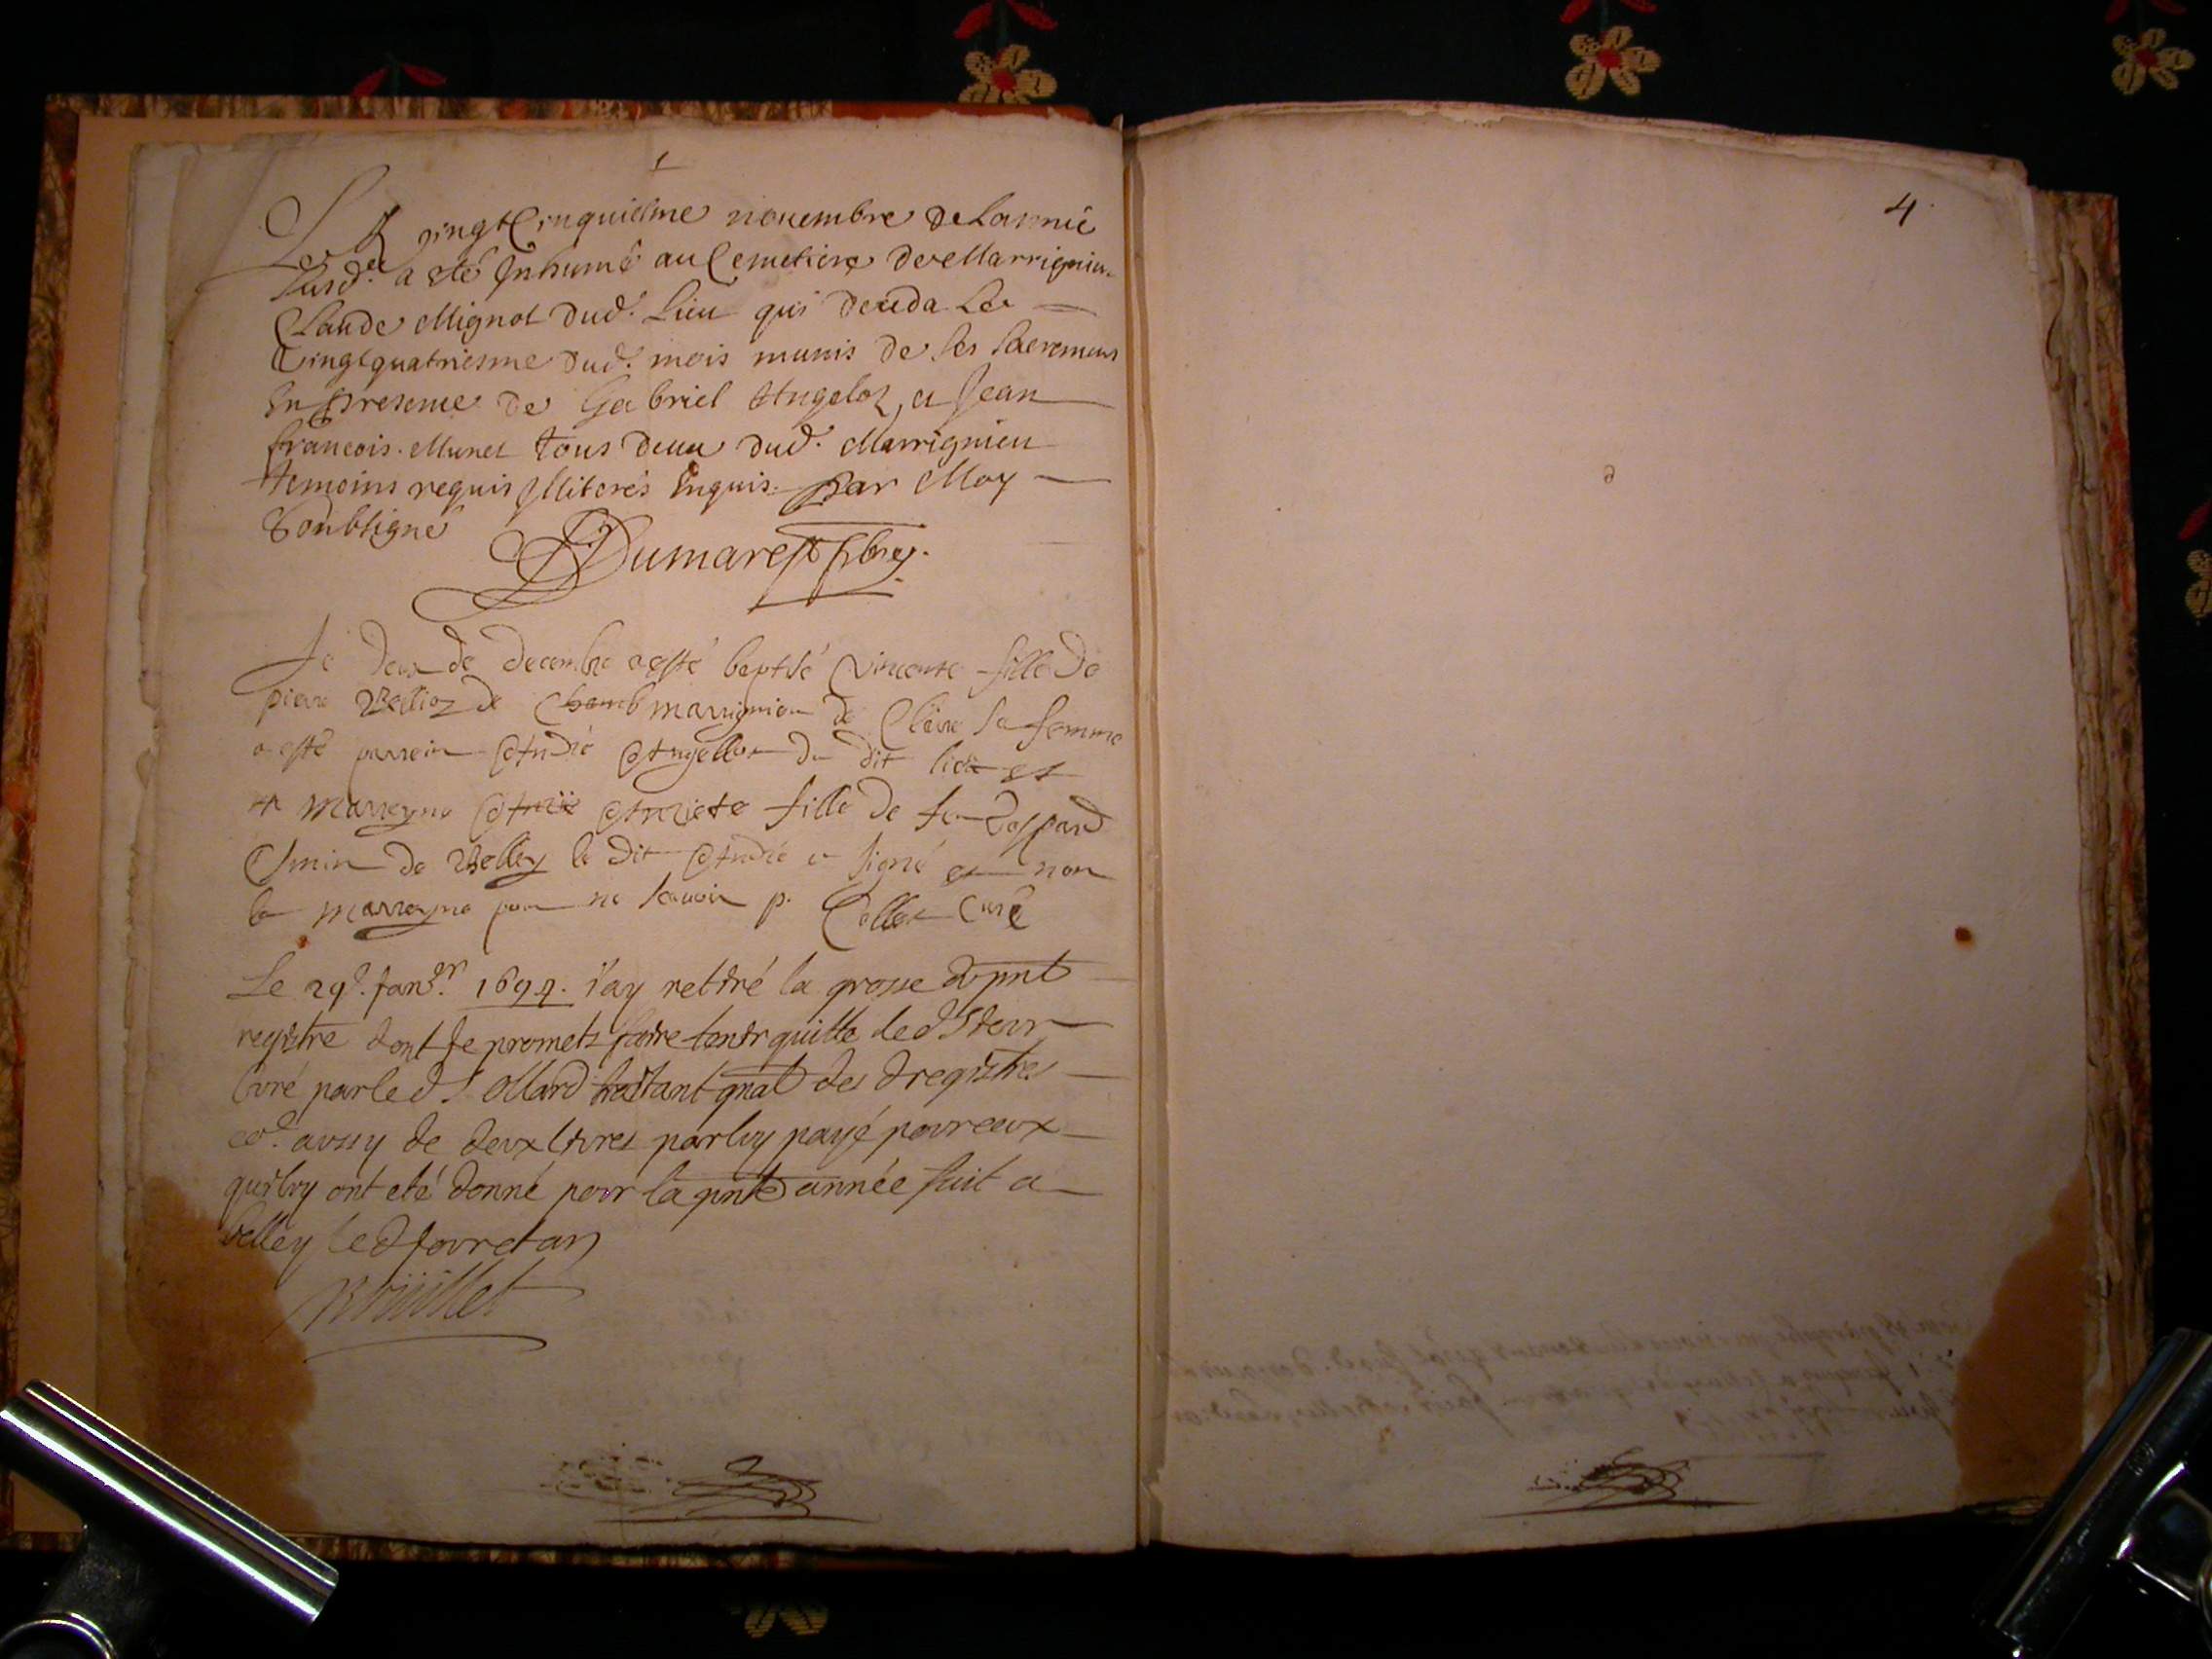 Le vingt Cinquiesme nouembre de Lannée
Susd. a esté Inhumé au Cemetiere de Marrignieu
Claude Mignot dud. Lieu qui deceda Le
Vingtquatriesme dud. mois munis de ses sacremens
En presence de Gabriel Angelot, et Jean
francois Munet tous deux dud. Marrignieu
temoins requis Illiterés Enquis par Moy
soubsigné
Dumarest pbre.
le deux de decembre a esté baptisé Vincente fille de
pierre de Chamb marrignieu de Claire sa femme
a esté parrein André Angellot du dit lieu et
marreyne fille de feu Gaspard
de Belley le dit André a signé et non
la marreyne pour ne scauoir p. Collet Curé
Le 29e. Janer. 1694. j'ay retiré la grosse du pnt
registre dont je promets faire tenir quitte led Sieur
Curé par led S. Ollard traitant gnal des d registres
aussy de deux livres par luy payé pour ceux
qui luy ont eté donné pour la pnte année fait a
belley led jour et an
4